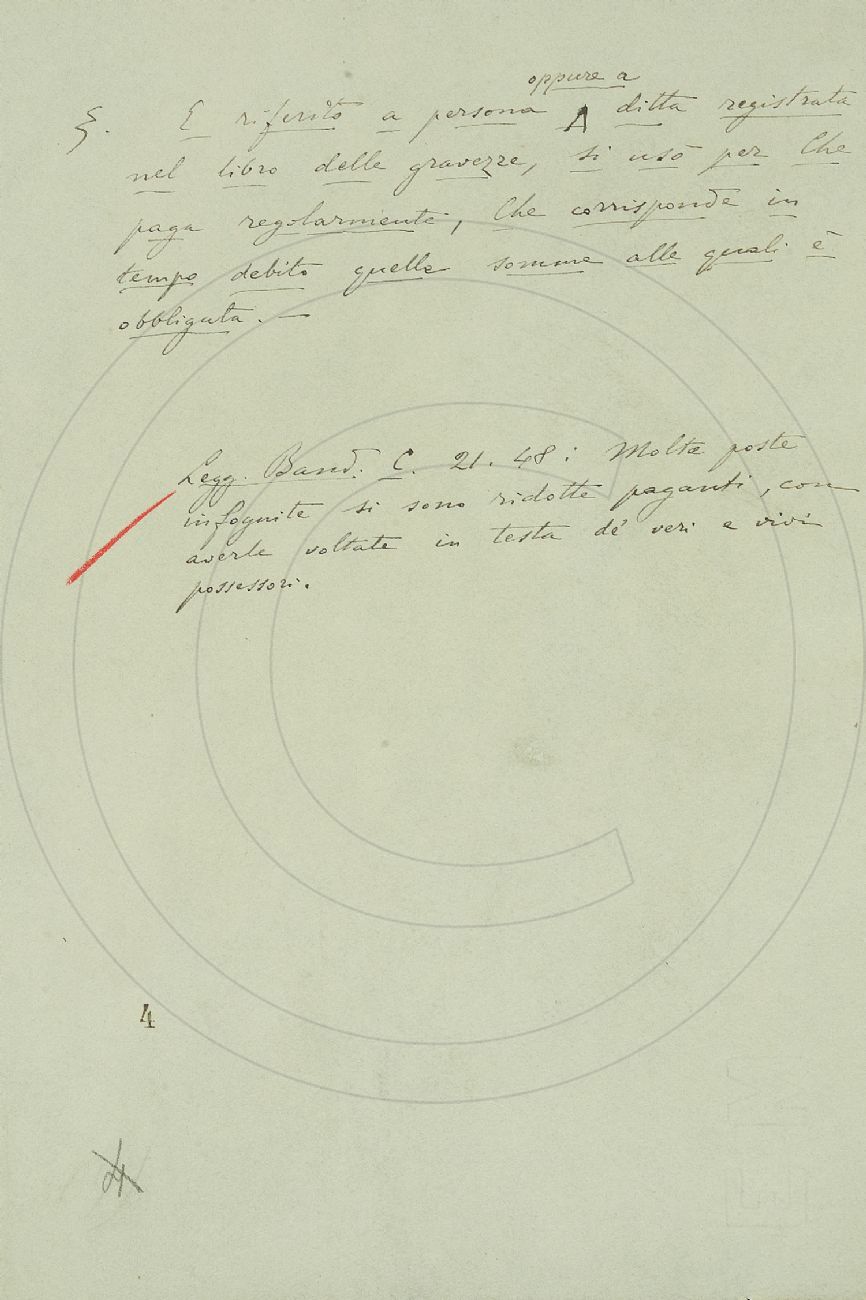 oppure a
§. E riferito a persona ditta registrata
nel libro delle gravezze, si usò per Che
paga regolarmente, Che corrisponde in
tempo debito quelle somme alle quali è
obbligata. —
Legg. Band. C. 21. 48: Molte poste
infognite si sono ridotte paganti, con
averle voltate in testa de' veri e vivi
possessori.
4